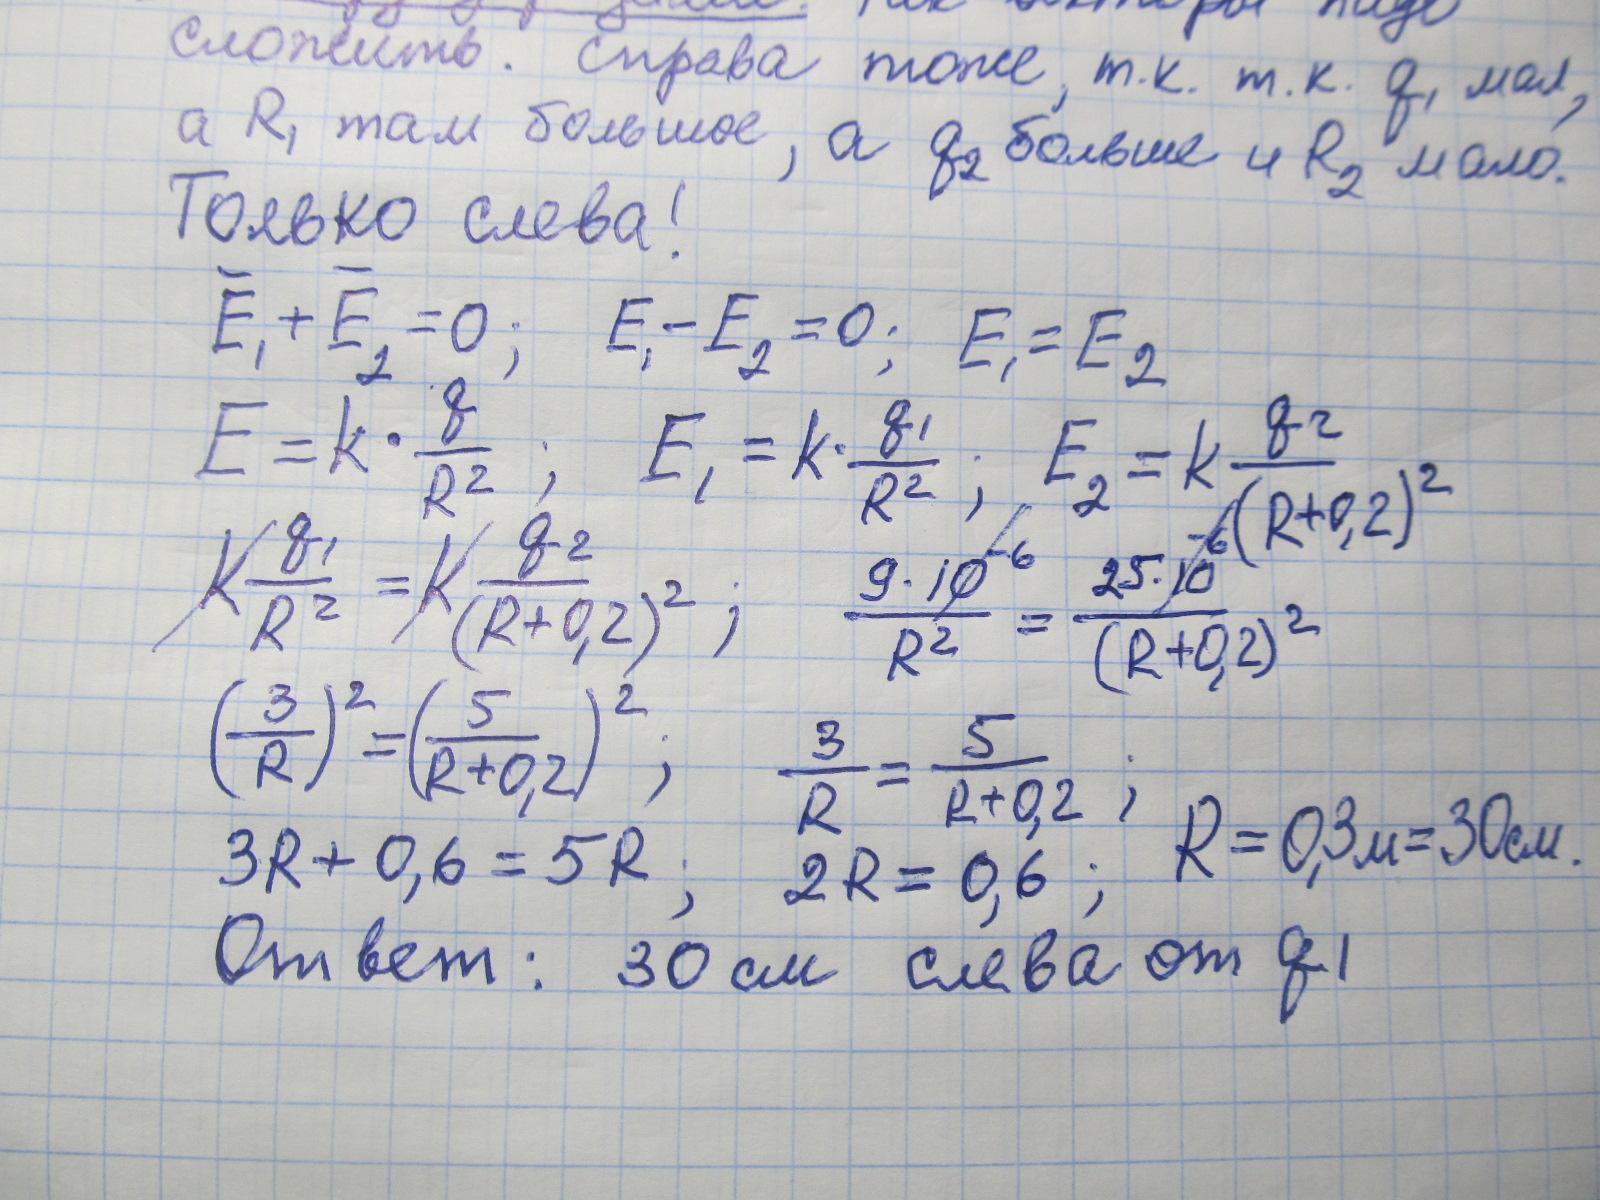 сложить. Справа тоже, т.к. т.к. q₁ мал,
а R₁ там большое, а q₂ больше и R₂ мало.
Только слева!
E̅₁ + E̅₂ = 0; E₁ - E₂ = 0; E₁ = E₂
E = k · q/R²; E₁ = k · q₁/R²; E₂ = k q₂/(R+0,2)²
K q₁/R² = K q₂/(R+0,2)²; 9·10⁻⁶/R² = 25·10⁻⁶/(R+0,2)²
(3/R)² = (5/(R+0,2))²; 3/R = 5/(R+0,2);
3R + 0,6 = 5R; 2R = 0,6; R = 0,3м = 30см.
Ответ: 30 см слева от q₁